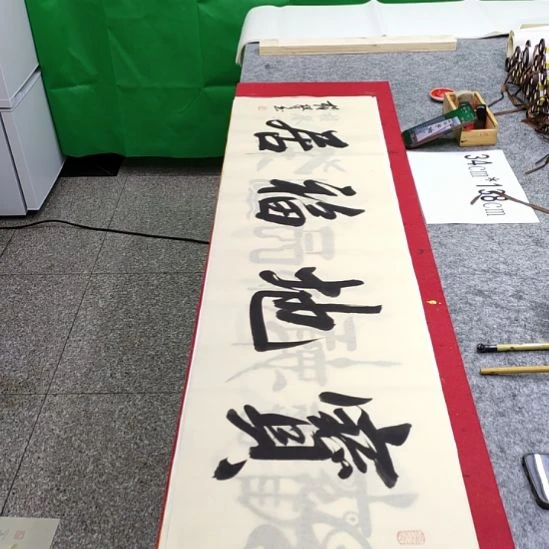 寶地福居
34cm*138cm